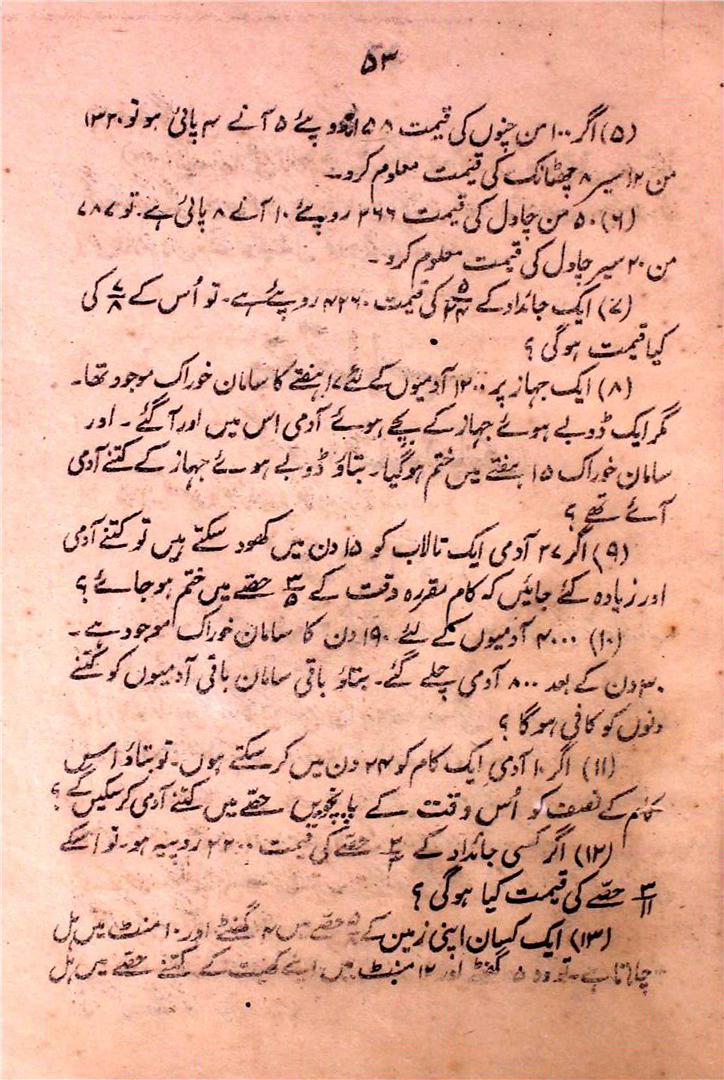 ۵۳
(۵) اگر ۱۰۰ من چنوں کی قیمت روپئے ۵ آنے ۴ پائی ہو تو ۳۲۰
من ۱۲ سیر ۸ چھٹانک کی قیمت معلوم کرو۔
(۶) ۵۰ من چاول کی قیمت ۲۶۶ روپئے ۱۰ آنے ۸ پائی ہے۔ تو ۷۸۷
من ۲۰ سیر چاول کی قیمت معلوم کرو۔
(۷) ایک جائداد کے ۵/۲۴ کی قیمت ۴۲۶۰ روپئے ہے۔ تو اُس کے ۷/۸ کی
کیا قیمت ہوگی ؟
(۸) ایک جہاز پر ۱۲۰۰ آدمیوں کے لئے ۱۷ ہفتے کا سامان خوراک موجود تھا۔
مگر ایک ڈوبے ہوئے جہاز کے بچے ہوئے آدمی اس میں اور آگئے۔ اور
سامان خوراک ۱۵ ہفتے میں ختم ہوگیا۔ بتاؤ ڈوبے ہوئے جہاز کے کتنے آدمی
آئے تھے ؟
(۹) اگر ۲۷ آدمی ایک تالاب کو ۱۵ دن میں کھود سکتے ہیں تو کتنے آدمی
اور زیادہ کئے جائیں کہ کام مقررہ وقت کے ۳/۵ حصّے میں ختم ہوجائے ؟
(۱۰) ۴۰۰۰ آدمیوں کے لئے ۱۹۰ دن کا سامان خوراک موجود ہے۔
۳۰ دن کے بعد ۸۰۰ آدمی چلے گئے۔ بتاؤ باقی سامان باقی آدمیوں کو کتنے
دنوں کو کافی ہوگا ؟
(۱۱) اگر ۱۰ آدمی ایک کام کو ۲۴ دن میں کرسکتے ہوں۔ تو بتاؤ اسی
کام کے نصف کو اُس وقت کے پانچویں حصّے میں کتنے آدمی کرسکیں گے ؟
(۱۲) اگر کسی جائداد کے حصّے کی قیمت ۲۲۰۰ روپیہ ہو۔ تو اسکے
۳/۱۱ حصّے کی قیمت کیا ہوگی ؟
(۱۳) ایک کسان اپنی زمین کے حصّے میں ۴ گھنٹے اور ۱۰ منٹ میں ہل
چلاتا ہے۔ تو وہ ۵ گھنٹے اور ۱۲ منٹ میں اپنے کھیت کے کتنے حصّے میں ہل